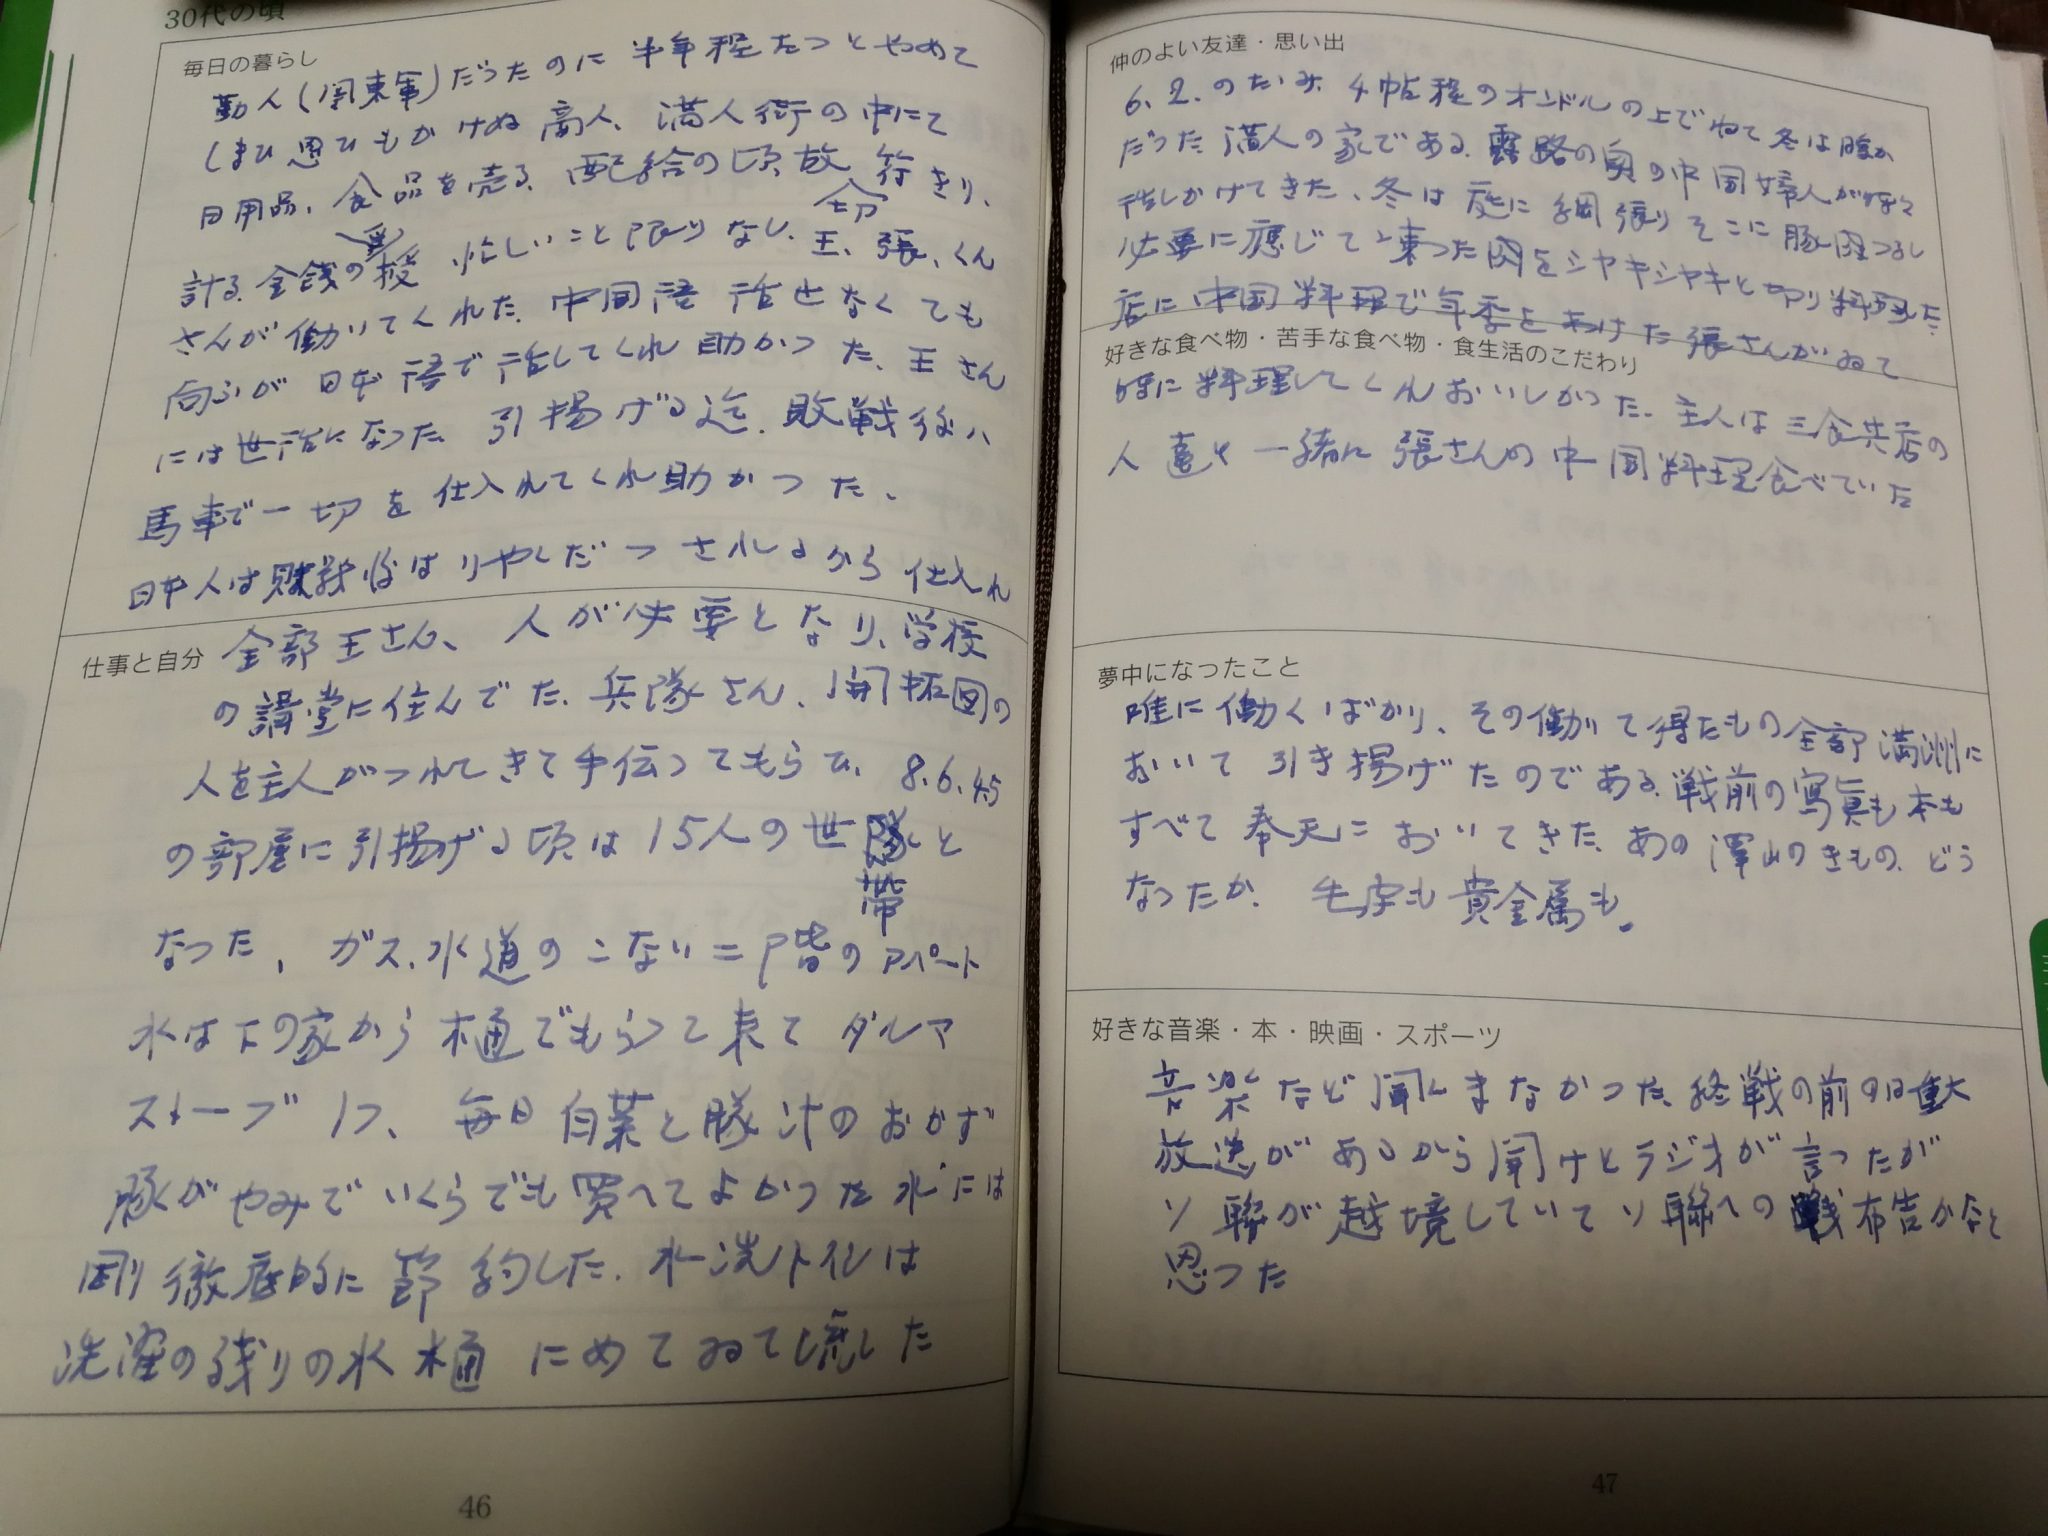 30代の頃
毎日の暮らし
勤人(関東軍)だったのに 半年程たつとやめて
しまひ思ひもかけぬ商人、満人街の中にて
日用品、食品を売る、配給の頃、
計る、金銭の授受 忙しいこと限りなし、王、張、くん
さんが働いてくれた、中国語 話せなくても
向ふが 日本語で話してくれ助かつた、王さん
には世話になった 引揚げる迄、敗戦後ハ
馬車で一切を仕入れてくれ助かつた、
日本人は敗戦後は されるから 仕入れ
仕事と自分
全部王さん、人が必要となり、学校
の講堂に住んでた 兵隊さん、開拓団の
人を主人がつれてきて手伝ってもらひ、8.6.4.5
の部屋に引揚げる頃は15人の世帯と
なった、ガス、水道のこない二階のアパート
水は下の家から桶でもらって来て ダルマ
ストーブ 1つ、毎日 白菜と豚汁のおかず
豚がやみでいくらでも買へてよかった 水には
徹底的に節約した、水洗トイレは
洗濯の残りの水 桶 にめてゐて流した
46
仲のよい友達・思い出
6.2.のたゝみ 4帖程のオンドルの上でねて冬は暖か
だつた、満人の家である、路の奥の中国婦人が時々
話しかけてきた、冬は庭に綱張りそこに豚肉つるし
必要に応じて凍った肉をシヤキシヤキと切り料理した
店に中国料理で年季をあけた張さんがゐて
好きな食べ物・苦手な食べ物・食生活のこだわり
時に料理してくれおいしかつた、主人は三食共店の
人達と一緒に張さんの中国料理食べていた
夢中になったこと
唯に働くばかり、その働いて得たもの全部満洲に
おいて 引き揚げたのである、戦前の写真も本も
すべて奉天においてきた、あの沢山のきもの、どう
なったか、毛皮も貴金属も。
好きな音楽・本・映画・スポーツ
音楽など聞くまなかった、終戦の前の日重大
放送があるから聞けとラジオが言つたが
ソ聯が越境していてソ聯への戦布告かなと
思つた
47